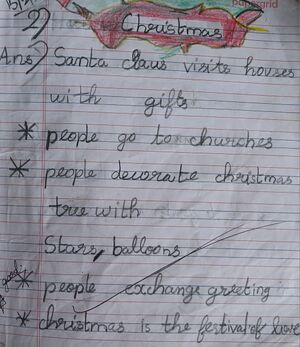 2) Christmas
Ans) Santa claus visits houses
with gifts
* people go to churches
* people decorate christmas
true with
Stars, balloons
good
* people exchange greeting
* christmas is the festival of love